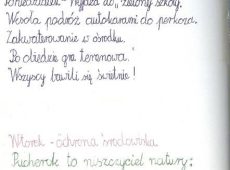 Poniedziałek - Wyjazd do „zielonej szkoły.
Wesoła podróż autokarami do perkoza.
Zakwaterowanie w ośrodku.
Po obiedzie gra terenowa.
Wszyscy bawili się świetnie!
Wtorek - ochrona środowiska
to niszczyciel natury: